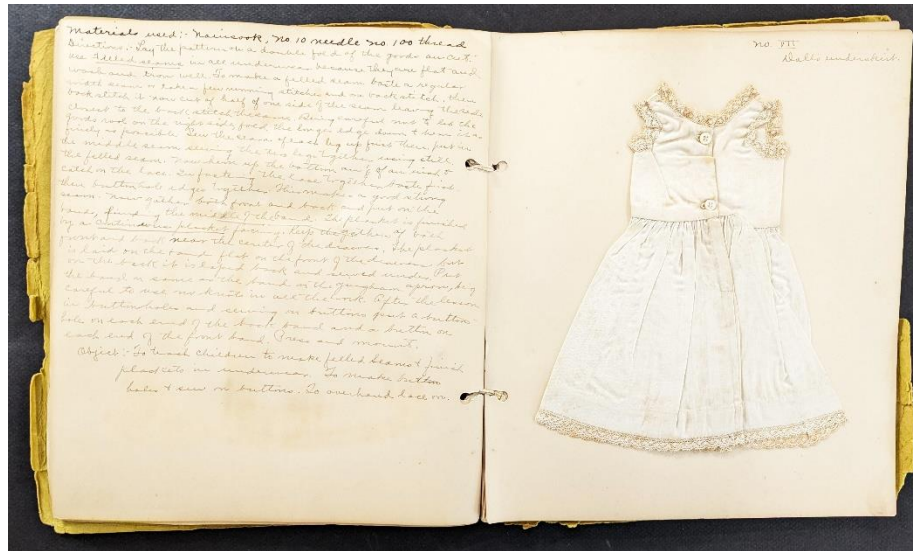 Materials used:- Nainsook, No 10 needle No. 100 thread
Directions:- Lay the pattern on a double fold of the goods an cut.
Use felled seams in all underwear because they are flat and
wash and iron well. To make a felled seam baste a regular
stitch seam or take a few running stitches and a back stitch, then
back stitch it now cut of half of one side of the seam leaving the side
closest to the back stitch the same. Being careful not to let the
goods roll on the right side, fold the longer edge down & hem it as
finely as possible. Sew the seam of each leg up first then put in
the middle seam sewing the two legs together, using still
the felled seam. Now hem up the bottom an ⅛ of an inch &
catch on the lace. In fastening the lace together baste first
then buttonhole edges together. This makes a good strong
seam. Now gather both front and back and put on the
bands, finding the middle of the band. The placket is finished
by a continuous placket facing. Keep the gathers of both
front and back near the center of the drawers. The placket
is laid on the band flat on the front of the drawers but
on the back it is lapped back and sewed under. Put
the band on same as the band on the gingham apron, being
careful to use no knots in all the work. After the lesson
in buttonholes and sewing on buttons put a button-
hole on each end of the back band and a button on
each end of the front band. Press and mount.
Object:- To teach children to make felled seams & finish
plackets in underwear. To make button
holes & sew on buttons. To overhand lace on.
No VII
Dolls underskirt.